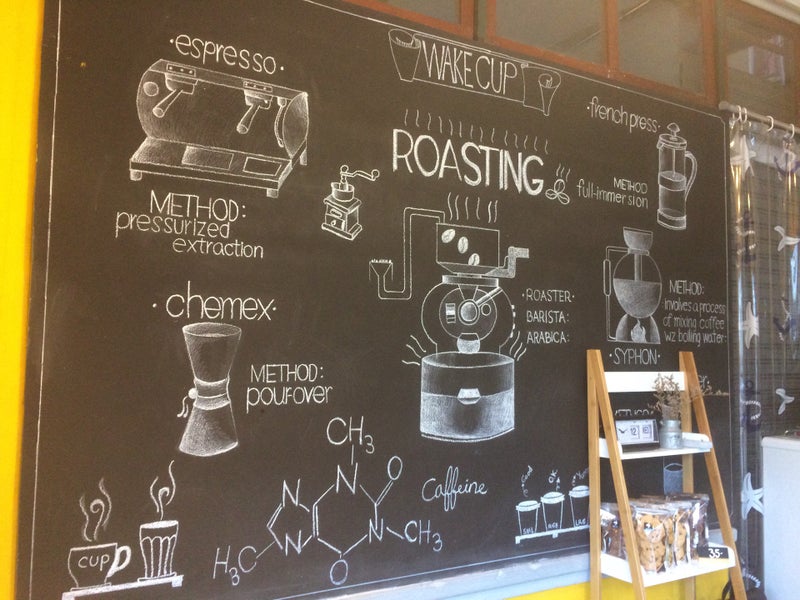 ·espresso·
METHOD:
pressurized
extraction
WAKE CUP
ROASTING
·french press·
METHOD
full-immersion
·chemex·
METHOD:
pour-over
·ROASTER·
BARISTA:
ARABICA:
METHOD:
·involves a process
of mixing coffee
wz boiling water:
·SYPHON·
CH3
N
N
O
N
N
CH3
H3C
O
Caffeine
CUP
12
35.-